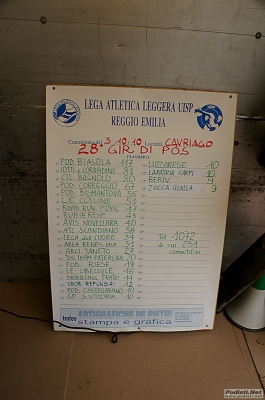 LEGA ATLETICA LEGGERA UISP
REGGIO EMILIA
Campionato del 3.10.10 Località CAVRIAGO
28ª GIR DI POS
CLASSIFICA
POD. BIASOLA 117
IOTTI e CORRADINI 81
CTL BAGNOLO 80
POD. CORREGGIO 67
POD. BISMANTOVA 56
LE COLLINE 51
ROAD RUN POVIG 47
RUBIERESE 43
AVIS NOVELLARA 40
ATL SCANDIANO 38
LEGA del CUORE 34
AREA RENES UISP 31
ARCI TANETO 27
JOGTEAM PATERLINI 20
POD. RIESE 19
LE LIBELLULE 16
DRIBBLING PRATO 14
UDOR REFUNDA 12
POD. CASTELLARANO 10
GP. S. VITTORIA 10
LUZZARESE 10
LABATRIA CARPI 10
BERIV. 9
ZUCCA GIALLA 9
Tot 1072
di cui 231
competitivi
trofeo ARTIGRAFICHE DE PIETRI
stampa e grafica
Podisti.Net
www.podisti.net